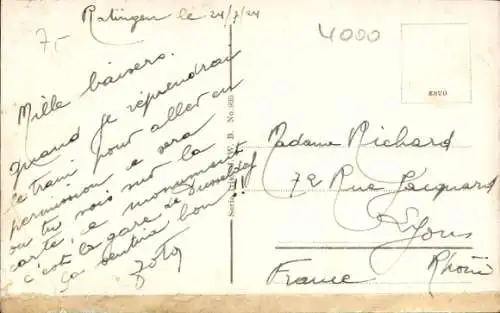 7,-
Ratingen le 24/7/24
4000
Mille baisers.
quand je reprendrai
le train pour aller en
permission ce sera
où tu vois sur la
carte, ce monument
c'est la gare de Dusseldorf
ça sentira bon !!
Serie W. B. No.
Madame Richard
72 Rue Jacquard
Lyon
France Rhône